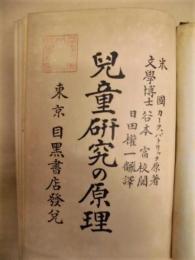 米國カークパトリック原著
文學博士谷本富校閲
日田權一飜譯
兒童研究の原理
東京 目黒書店發兌